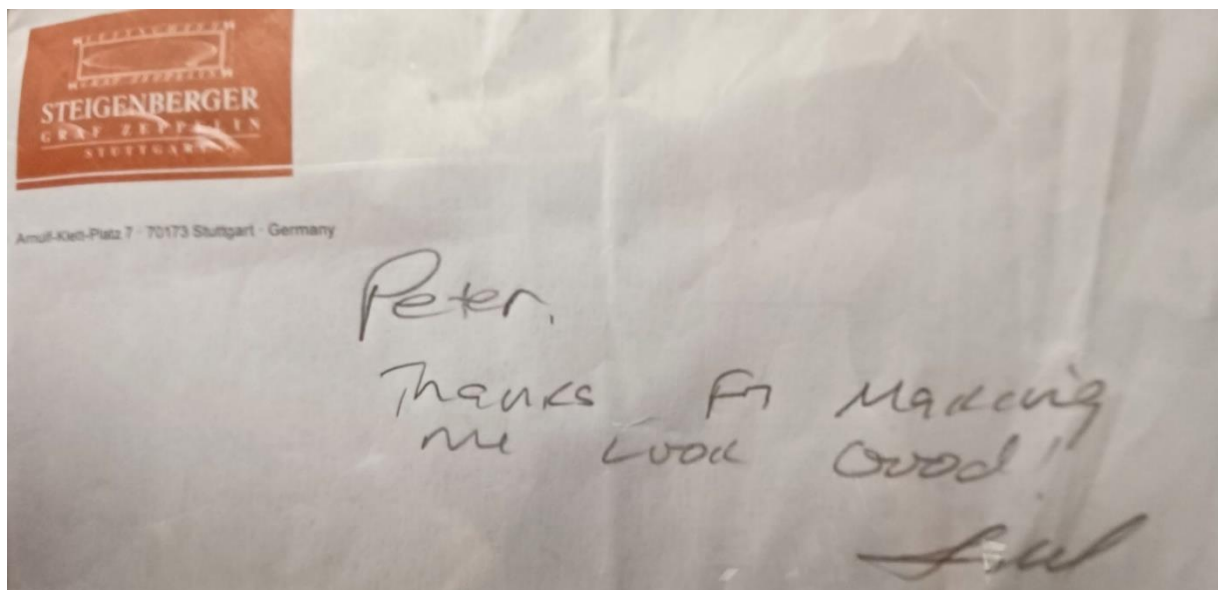 STEIGENBERGER
GRAF ZEPPELIN
STUTTGART
Arnulf-Klett-Platz 7 · 70173 Stuttgart · Germany
Peter,
Thanks For Making
me Look Good!